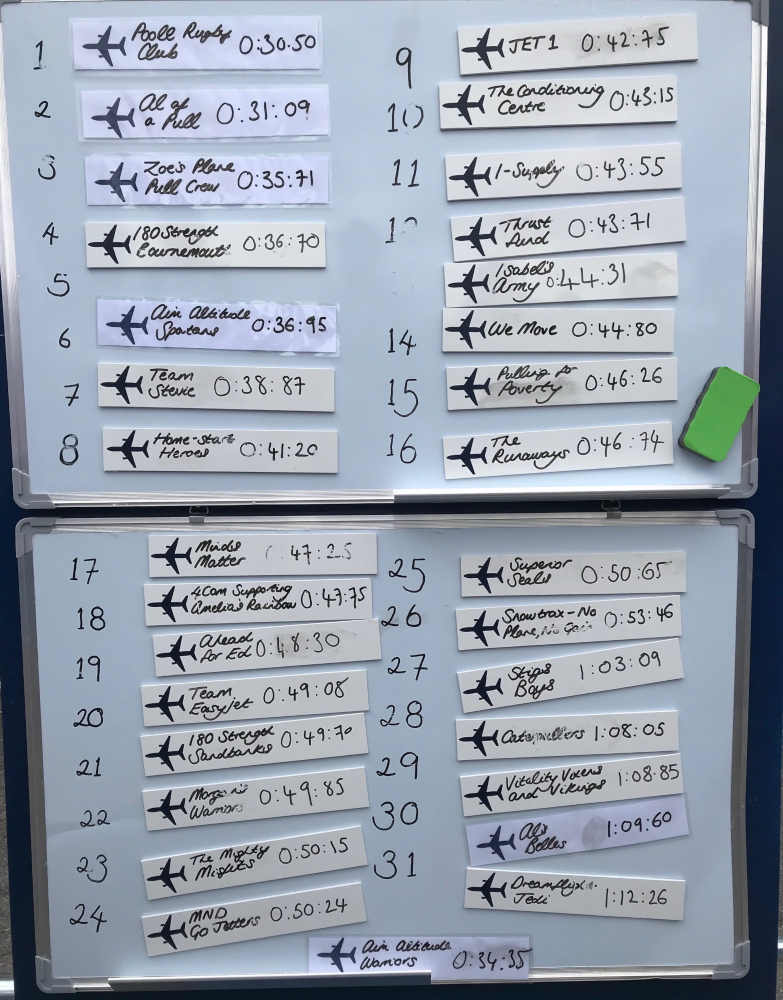 1 Poole Rugby
Club 0:30.50
2 Al of
a Pull 0:31:09
3 Zoe's Plane
Pull Crew 0:35:71
4 180 Strength
Bournemouth 0:36:70
5
6 Aim Altitude
Spartans 0:36:95
7 Team
Stevie 0:38:87
8 Home-Start
Heroes 0:41:20
9 JET 1 0:42:75
10 The Conditioning
Centre 0:43:15
11 I-Supply 0:43:55
Thrust
Aind 0:43:71
Isabel's
Army 0:44:31
14 We Move 0:44:80
15 Pulling for
Poverty 0:46:26
16 The
Runaways 0:46:74
17 Minds
Matter 47:25
18 4Com Supporting
Amelia's Rainbow 0:47:75
19 Ahead
for Ed 0:48:30
20 Team
EasyJet 0:49:08
21 180 Strength
Sandbanks 0:49:70
22 Morgan's
Warriors 0:49:85
23 The Mighty
Mights 0:50:15
24 MND
Go Jetters 0:50:24
25 Superior
Seals 0:50:65
26 Snowtrax-No
Plane, No Gain 0:53:46
27 Stigs
Boys 1:03:09
28 Caterpillers 1:08:05
29 Vitality Vixens
and Vikings 1:08.85
30 Al's
Belles 1:09:60
31 Dreamflight
Jedi 1:12:26
Aim Altitude
Warriors 0:34:35